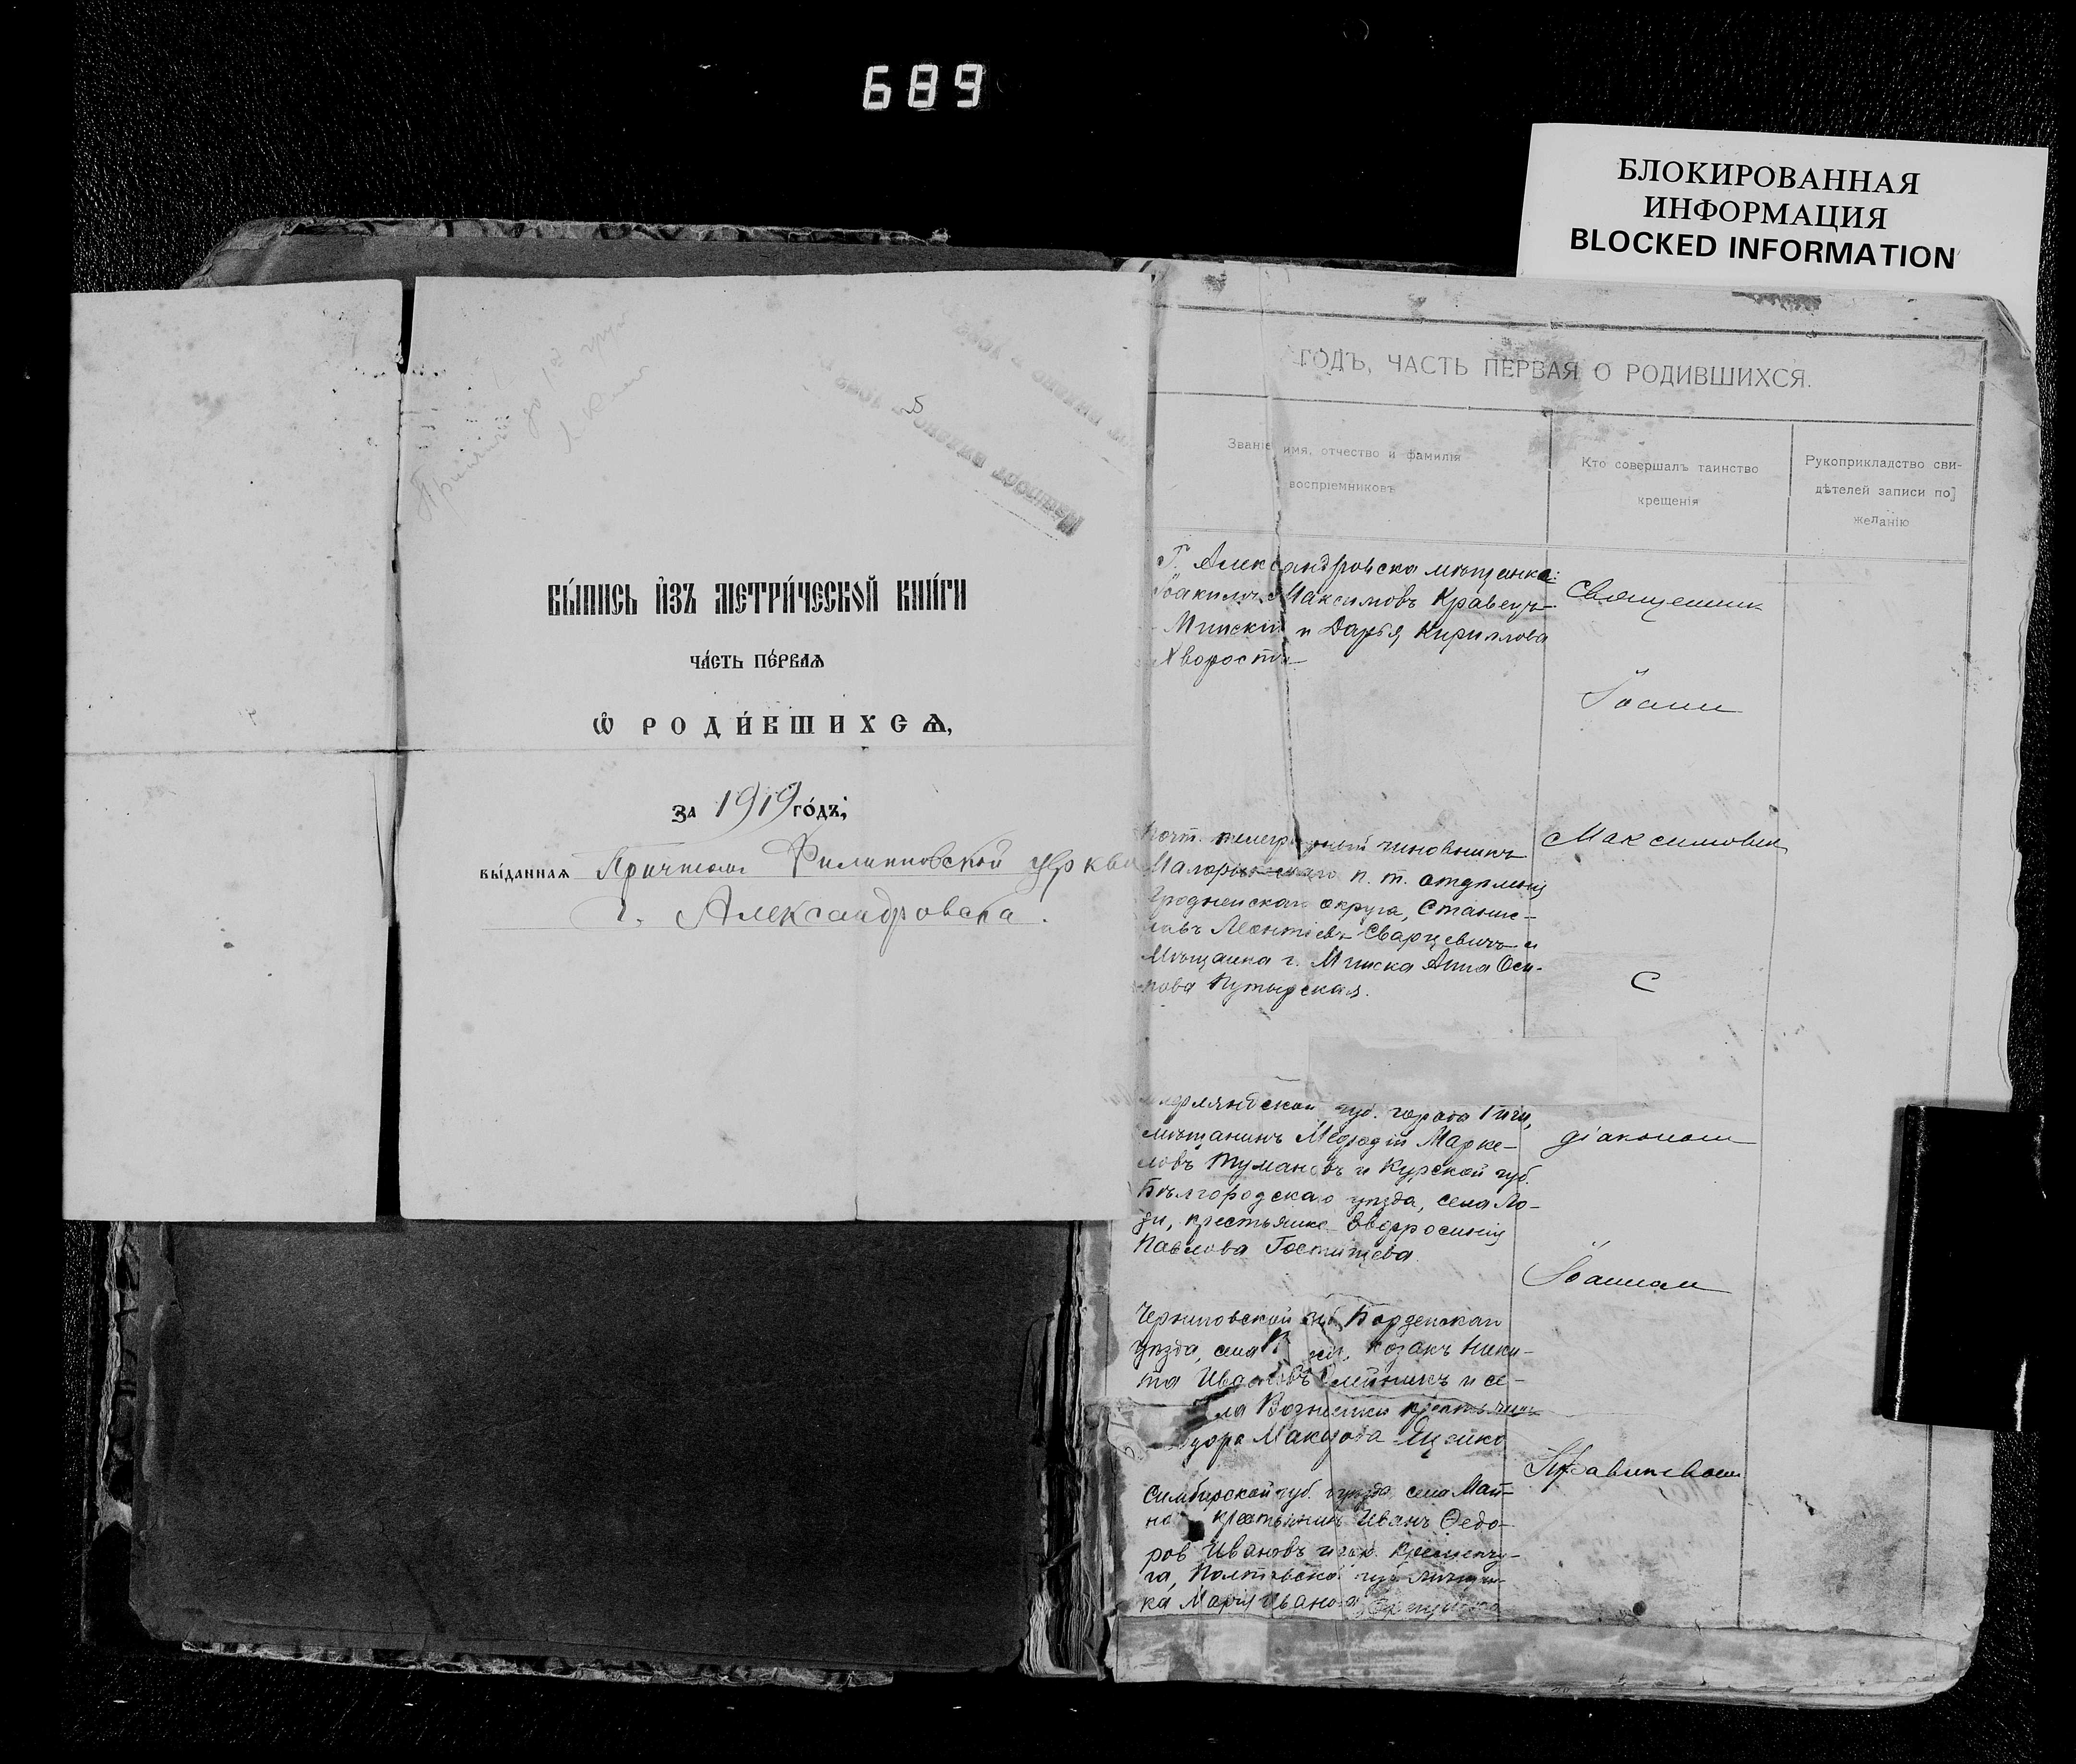 689
БЛОКИРОВАННАЯ
ИНФОРМАЦИЯ
BLOCKED INFORMATION
ВЫ́ПИСЬ И҆ЗЪ МЕТРИ́ЧЕСКОЙ КНИ́ГИ
ЧА́СТЬ ПЕ́РВАѦ
Ѡ҆ РОДИ́ВШИХСѦ,
ЗА 1919 ГО́ДЪ,
ВЫ́ДАННАѦ Причтомъ Филипповской церкви
г. Александровска.
ГОДЪ, ЧАСТЬ ПЕРВАЯ О РОДИВШИХСЯ.
Званіе, имя, отчество и фамилія
воспріемниковъ
Кто совершалъ таинство
крещенія
Рукоприкладство сви-
дѣтелей записи по
желанію
Г. Александровска мѣщанка:
Іоакимъ Максимовъ Кравецъ-
Минскій и Дарья Кириллова
Хворостъ
Священник
Іоанн
почт. телеграфный чиновникъ
п. т. отдѣленія
Гродненскаго округа, Станис-
лавъ Леонтіевъ Сварцевичъ и
Мѣщанка г. Минска Анна Оси-
пова Путырская.
Максимович
С
губ. города Риги,
мѣщанинъ Меѳодій Марке-
ловъ Тумановъ и Курской губ.
Бѣлгородскаго уѣзда, села Ло-
зи, крестьянка Евфросинія
Павлова Гостищева.
діаконом
Іоанном
Черниговской губ. Борзенскаго
уѣзда, села козакъ Ники-
та Ивановъ и се-
ла Вознесенки
Макарова
Симбирской губ. уѣзда села Май-
на крестьянинъ Иванъ Ѳедо-
ров Ивановъ и гор. Кременчу-
га, Полтавской губ. мѣщан-
ка Марія Иванова